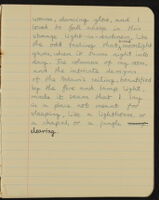 women, dancing glee, and I
used to fall asleep in this
strange light-in-darkness, like
the odd feeling that moonlight
gives when it turns night into
day. The colours of my room,
and the intricate designs
of the ceiling, beautified
by the fire and lamp light,
made it seem that I lay
in a place not meant for
sleeping, like a lighthouse, or
a chapel, or a jungle
clearing.